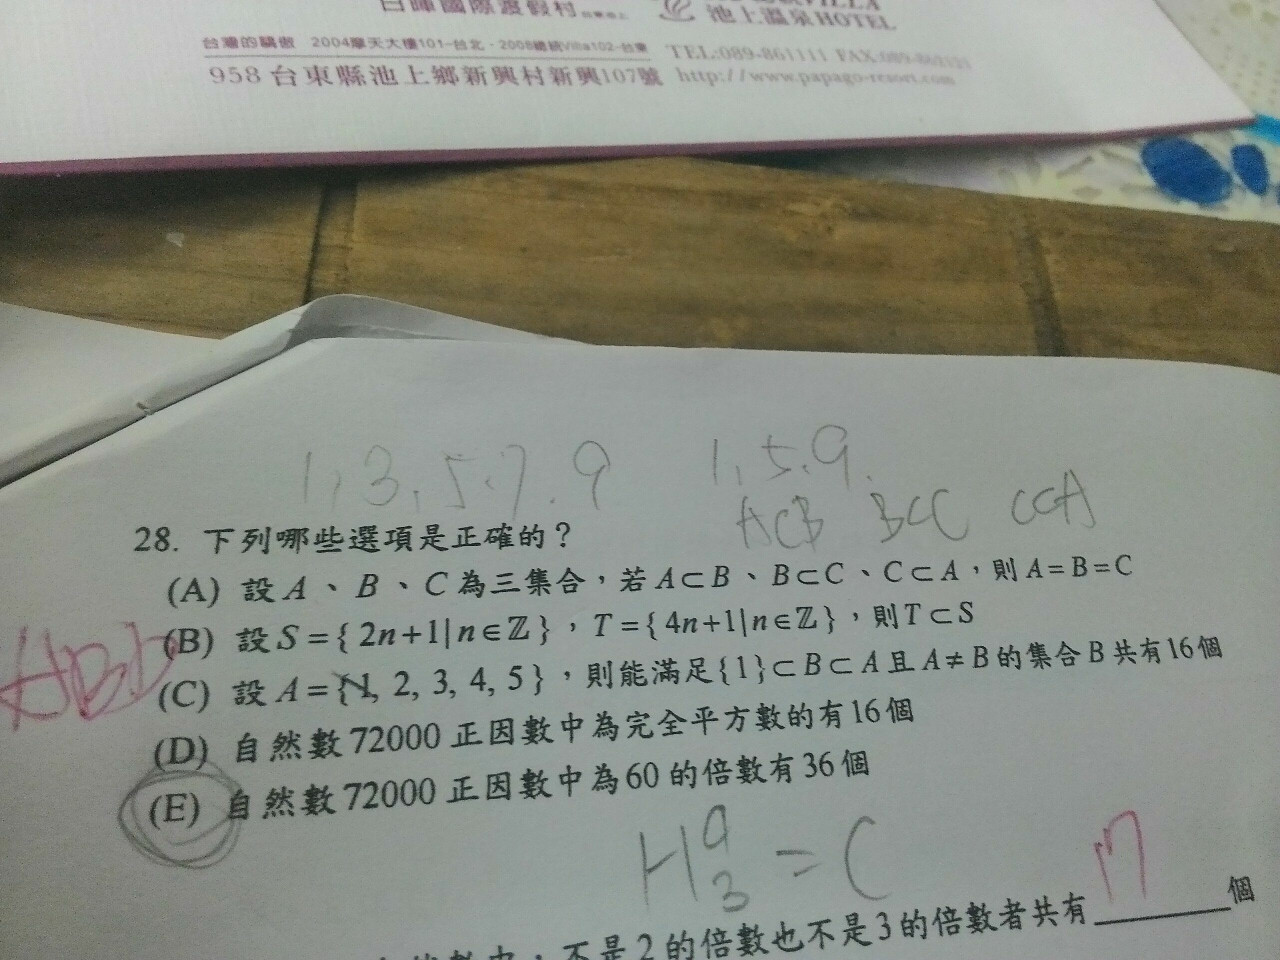 白暉國際渡假村
池上溫泉HOTEL
台灣的驕傲 2004摩天大樓101-台北·2008總統Villa102-台東 TEL:089-861111 FAX:089-
958 台東縣池上鄉新興村新興107號 http://www.papago-resort.com
1, 3, 5, 7, 9 1, 5, 9.
A⊂B B⊂C C⊂A
28. 下列哪些選項是正確的？
(A) 設 A、B、C 為三集合，若 A⊂B、B⊂C、C⊂A，則 A=B=C
(B) 設 S={ 2n+1|n∈ℤ }，T={ 4n+1|n∈ℤ }，則 T⊂S
ABD
(C) 設 A={1, 2, 3, 4, 5 }，則能滿足{1}⊂B⊂A 且 A≠B 的集合 B 共有16個
(D) 自然數 72000 正因數中為完全平方數的有16個
(E) 自然數 72000 正因數中為 60 的倍數有 36 個
H 9 3 = C
17
不是2的倍數也不是3的倍數者共有______個